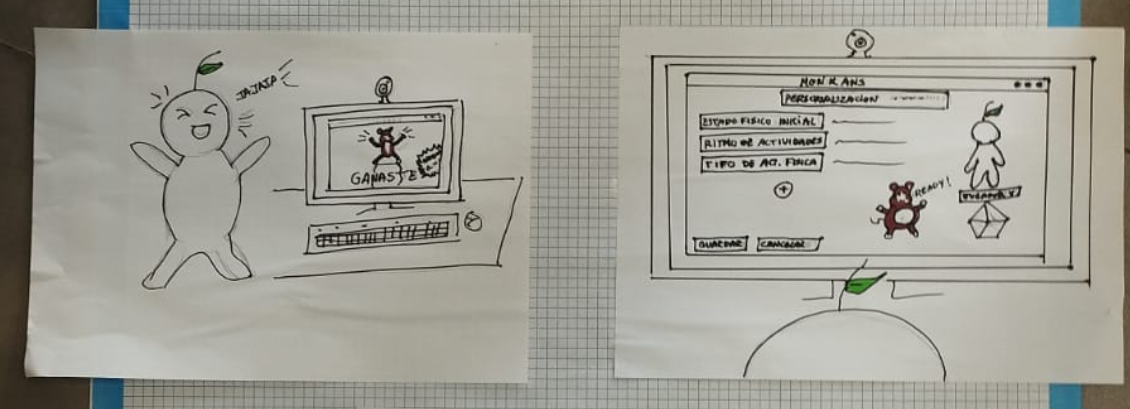 JAJAJA
GANASTE
MONKANS
PERSONALIZACION
ESTADO FISICO INICIAL
RITMO DE ACTIVIDADES
TIPO DE ACT. FISICA
+
READY!
GUARDAR
CANCELAR